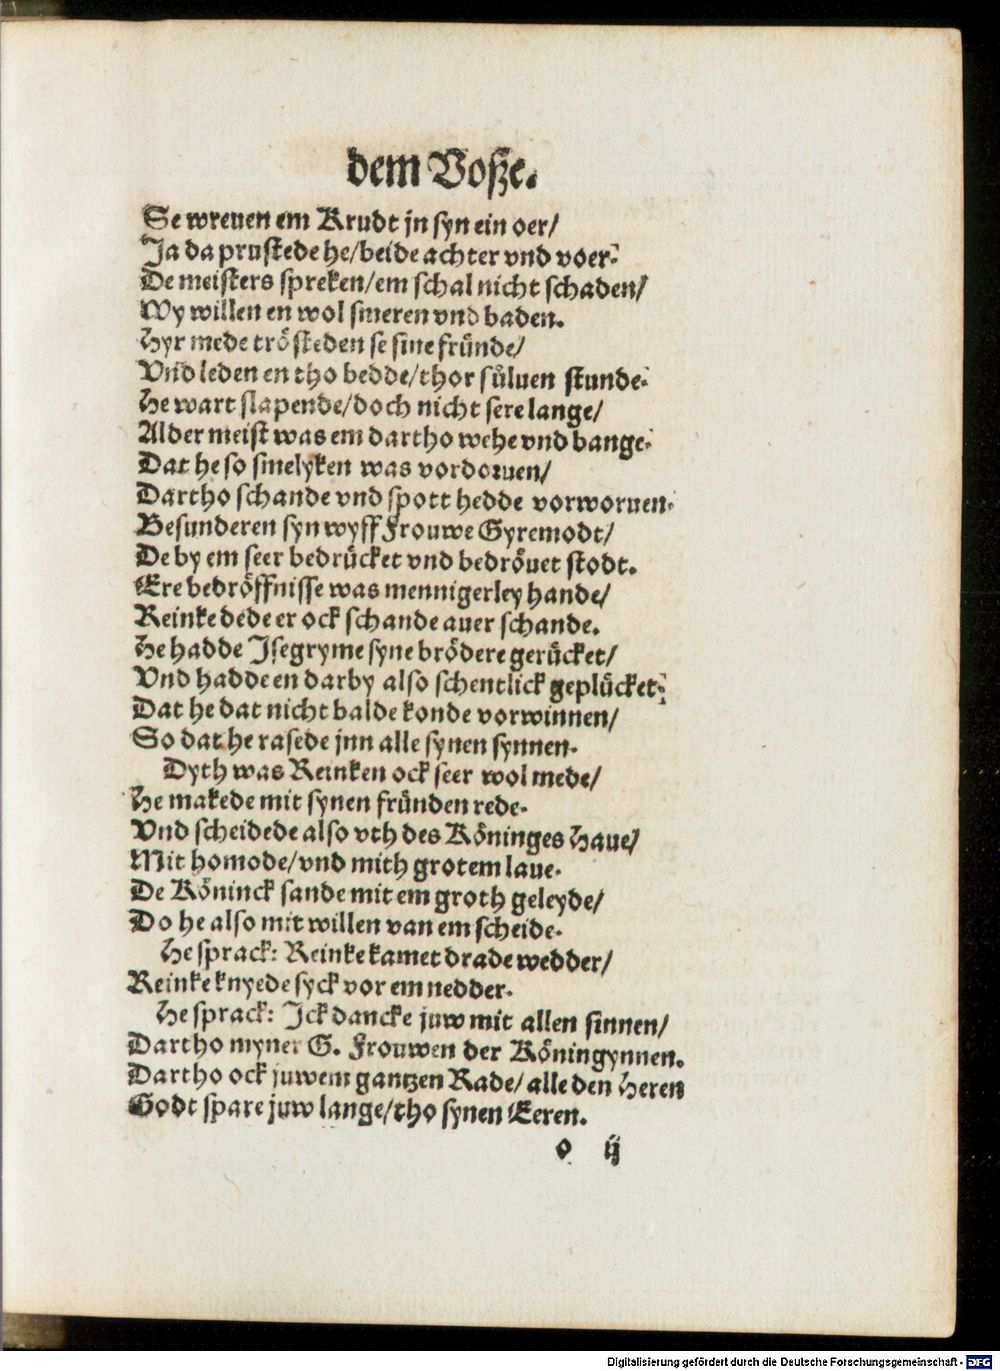 dem Voßze.
Se wreuen em Krudt jn syn ein oer/
Ja da prustede he/beide achter vnd voer.
De meisters spreken/em schal nicht schaden/
Wy willen en wol smeren vnd baden.
Hyr mede trösteden se sine fründe/
Vnd leden en tho bedde/thor süluen stunde.
He wart slapende/doch nicht sere lange/
Alder meist was em dartho wehe vnd bange.
Dat he so smelyken was vordoruen/
Dartho schande vnd spott hedde vorworuen.
Besunderen syn wyff Frouwe Gyremodt/
De by em seer bedrücket vnd bedröuet stodt.
Ere bedröffnisse was mennigerley hande/
Reinke dede er ock schande auer schande.
He hadde Isegryme syne brödere gerücket/
Vnd hadde en darby also schentlick geplücket.
Dat he dat nicht balde konde vorwinnen/
So dat he rasede jnn alle synen synnen.
Dyth was Reinken ock seer wol mede/
He makede mit synen fründen rede.
Vnd scheidede also vth des Köninges Haue/
Mit homode/vnd mith grotem laue.
De Köninck sande mit em groth geleyde/
Do he also mit willen van em scheide.
He sprack: Reinke kamet drade wedder/
Reinke knyede syck vor em nedder.
He sprack: Ick dancke juw mit allen sinnen/
Dartho myner G. Frouwen der Köningynnen.
Dartho ock juwem gantzen Rade/alle den Heren
Godt spare juw lange/tho synen Eeren.
o ij
Digitalisierung gefördert durch die Deutsche Forschungsgemeinschaft - DFG